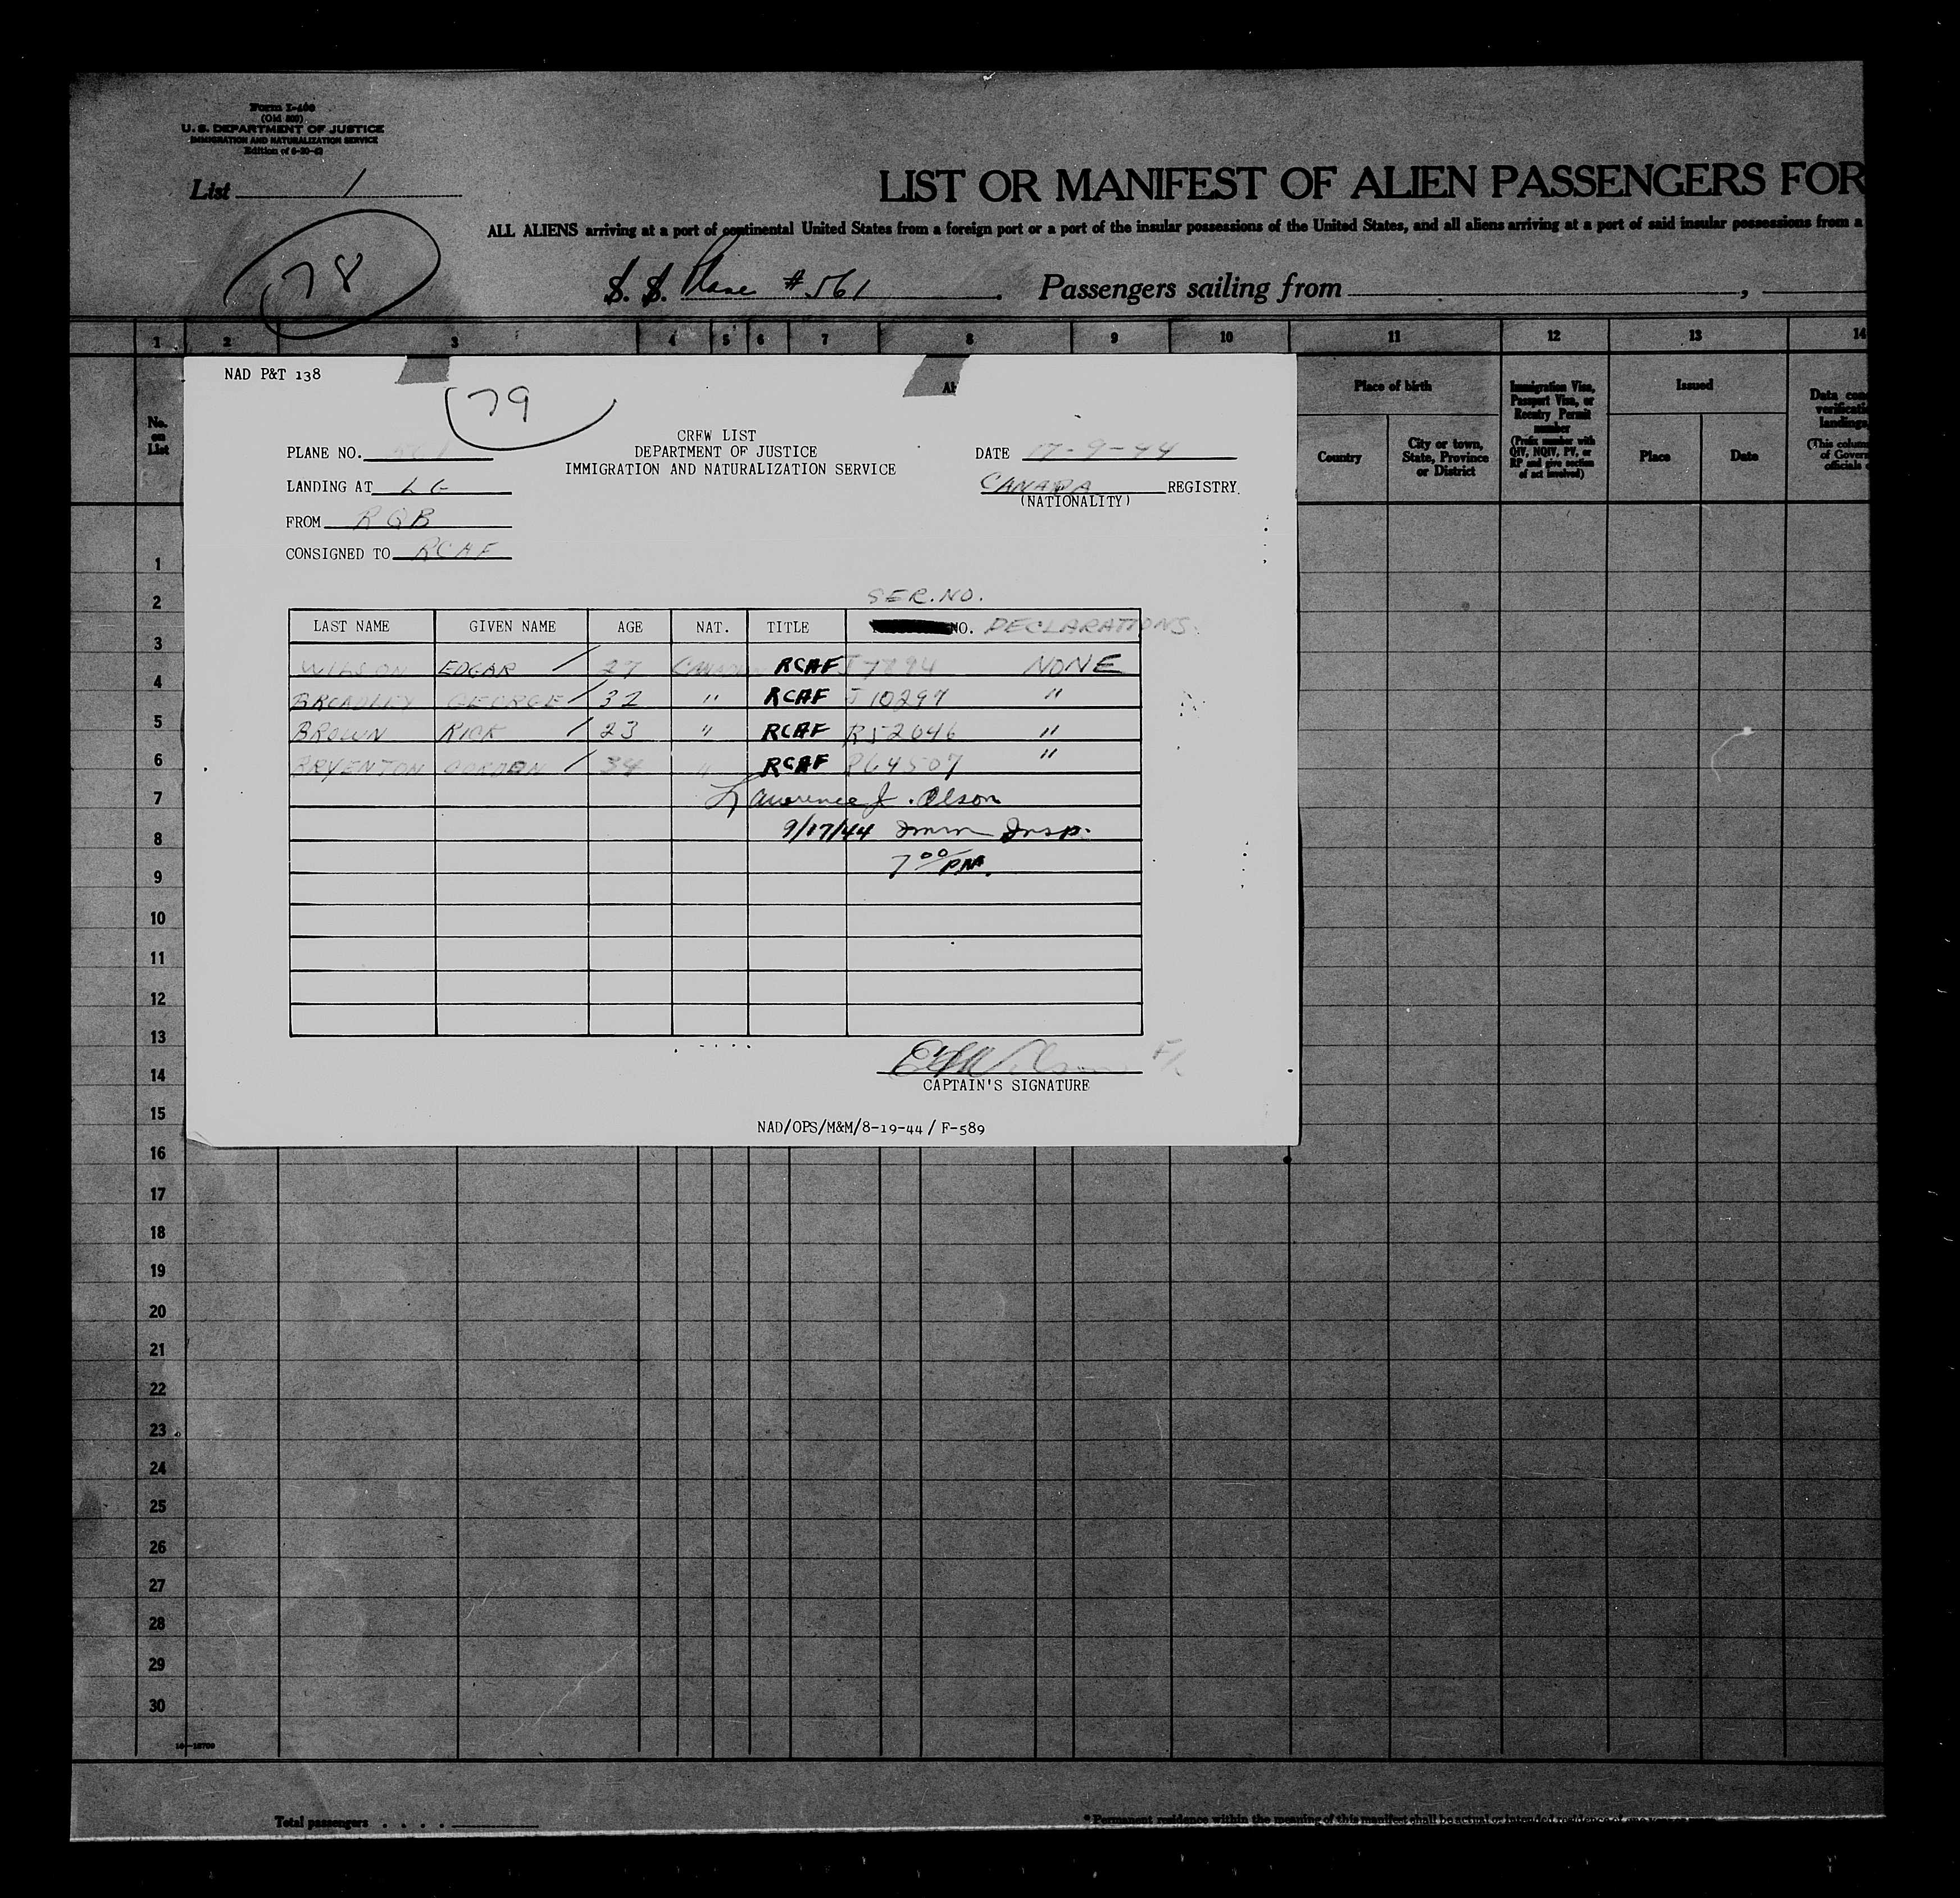 Form I-400
(Old 500)
U. S. DEPARTMENT OF JUSTICE
IMMIGRATION AND NATURALIZATION SERVICE
List 1
LIST OR MANIFEST OF ALIEN PASSENGERS FOR
ALL ALIENS arriving at a port of continental United States from a foreign port or a port of the insular possessions of the United States, and all aliens arriving at a port of said insular possessions from a
78
S. S. Plane #561 . Passengers sailing from ,
1 2 3 4 5 6 7 8 9 10 11 12 13 14
No. on List
Place of birth
Country
City or town, State, Province or District
Immigration Visa, Passport Visa, or Reentry Permit number
(Prefix number with QIV, NQIV, PV, or RP and give section of act involved)
Issued
Place
Date
NAD P&T 138
79
CREW LIST
PLANE NO. 561
DEPARTMENT OF JUSTICE
DATE 17-9-44
IMMIGRATION AND NATURALIZATION SERVICE
LANDING AT LG
CANADA REGISTRY
(NATIONALITY)
FROM RQB
CONSIGNED TO RCAF
SER.NO.
LAST NAME GIVEN NAME AGE NAT. TITLE NO. DECLARATIONS.
WILSON EDGAR / 27 CANADIAN RCAF J7894 NONE
BROADLEY GEORGE / 32 " RCAF J10297 "
BROWN RICK / 23 " RCAF R52646 "
BRYENTON GORDON / 34 " RCAF R64507 "
Lawrence J. Olson
9/17/44 Imm Insp.
7 00 PM.
CAPTAIN'S SIGNATURE
NAD/OPS/M&M/8-19-44/ F-589
1
2
3
4
5
6
7
8
9
10
11
12
13
14
15
16
17
18
19
20
21
22
23
24
25
26
27
28
29
30
Total passengers . . . .
* Permanent residence within the meaning of this manifest shall be actual or intended residence of